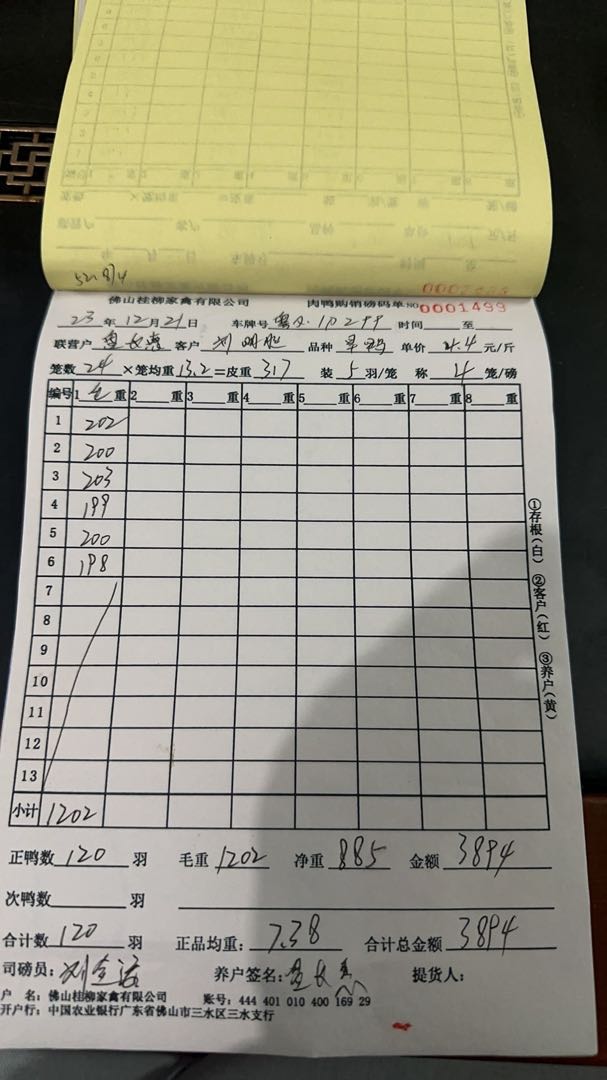 521.8/4
佛山桂柳家禽有限公司 肉鸭购销磅码单 NO 0001499
23年12月21日 车牌号 299 时间 至
联营户 客户 刘 品种 单价 4.4 元/斤
笼数 24 ×笼均重 13.2 =皮重 317 装 5 羽/笼 称 4 笼/磅
编号 1 毛重 2 重 3 重 4 重 5 重 6 重 7 重 8 重
1 202
2 200
3 203
4 199
5 200
6 198
7
8
9
10
11
12
13
小计 1202
正鸭数 120 羽 毛重 1202 净重 885 金额 3894
次鸭数 羽
合计数 120 羽 正品均重: 7.38 合计总金额 3894
司磅员: 刘 养户签名: 提货人:
户 名: 佛山桂柳家禽有限公司 账号: 444 401 010 400 169 29
开户行: 中国农业银行广东省佛山市三水区三水支行
①存根(白) ②客户(红) ③养户(黄)